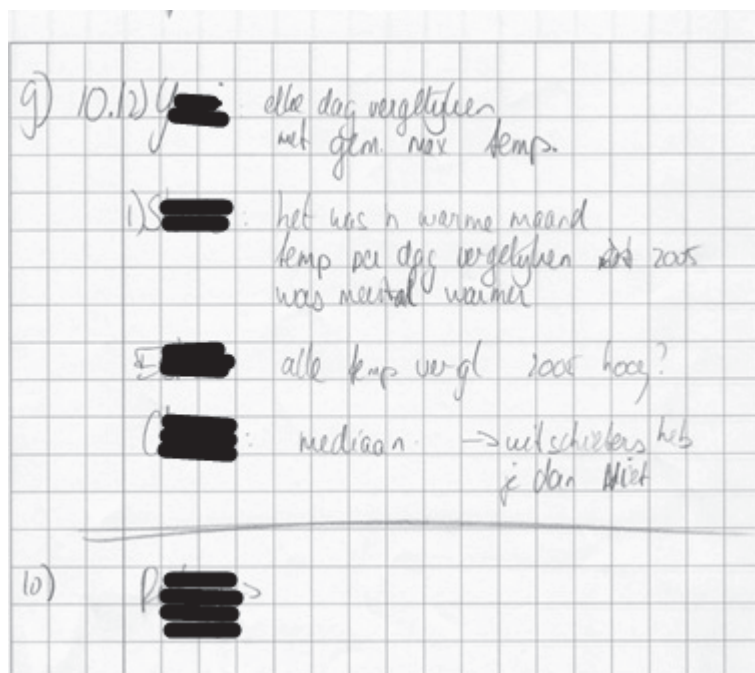 9) 10.12) Y : elke dag vergelijken
met gem. max temp.
1) S : het was 'n warme maand
temp per dag vergelijken 2005
was meestal warmer
alle temp vergl 2005 hoog?
C : mediaan → uitschieters heb
je dan niet
10)